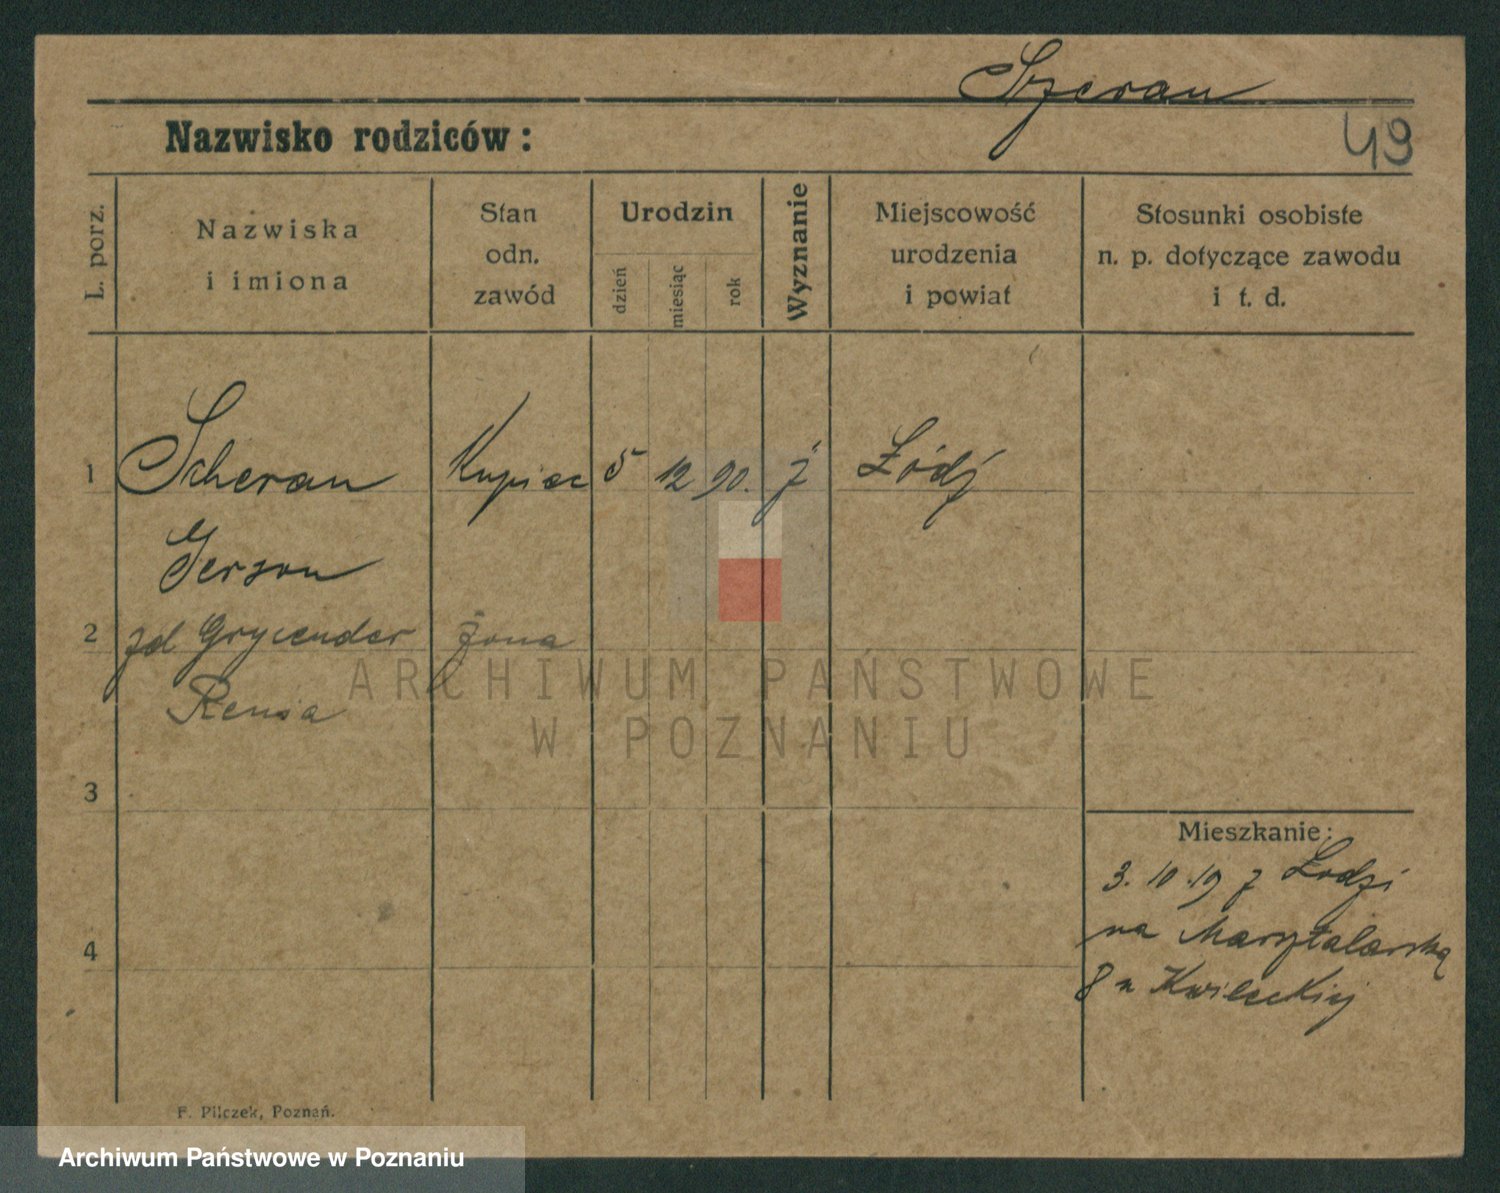 Szeran
Nazwisko rodziców:
49
L. porz.
Nazwiska
i imiona
Stan
odn.
zawód
Urodzin
dzień
miesiąc
rok
Wyznanie
Miejscowość
urodzenia
i powiat
Stosunki osobiste
n. p. dotyczące zawodu
i t. d.
1 Scheran Kupiec 5 12 90. j Łódź
Gerson
2 zd żona
Renia
ARCHIWUM PAŃSTWOWE
W POZNANIU
3
Mieszkanie:
3. 10. 19 z Łodzi
na
4
8 u Kwileckiej
F. Pilczek, Poznań.
Archiwum Państwowe w Poznaniu